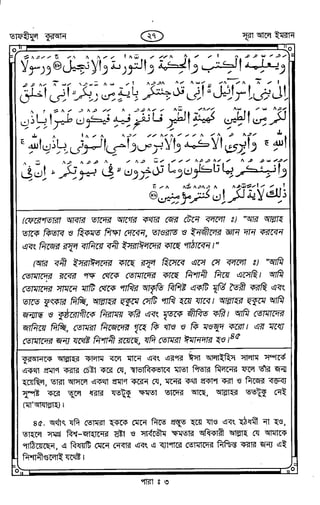 তাফহীমুল কুরআন
২৭
সূরা আলে ইমরান
وَيُعَلِّمُهُ الْكِتٰبَ وَالْحِكْمَةَ وَالتَّوْرٰىةَ وَالْاِنْجِيْلَ ۞ وَرَسُوْلًا
اِلٰى بَنِيْٓ اِسْرَآءِيْلَ اَنِّيْ قَدْ جِئْتُكُمْ بِاٰيَةٍ مِّنْ رَّبِّكُمْ اَنِّيْٓ اَخْلُقُ
لَكُمْ مِّنَ الطِّيْنِ كَهَيْئَةِ الطَّيْرِ فَاَنْفُخُ فِيْهِ فَيَكُوْنُ طَيْرًۢا بِاِذْنِ
اللّٰهِ وَاُبْرِئُ الْاَكْمَهَ وَالْاَبْرَصَ وَاُحْيِ الْمَوْتٰى بِاِذْنِ اللّٰهِ
وَاُنَبِّئُكُمْ بِمَا تَاْكُلُوْنَ وَمَا تَدَّخِرُوْنَ فِيْ بُيُوْتِكُمْ اِنَّ فِيْ
ذٰلِكَ لَاٰيَةً لَّكُمْ اِنْ كُنْتُمْ مُّؤْمِنِيْنَ ۞
(ফেরেশতারা আবার তাদের আগের কথার জের টেনে বললো ঃ) “আর আল্লাহ
তাকে কিতাব ও হিকমত শিক্ষা দেবেন, তাওরাত ও ইনজীলের জ্ঞান দান করবেন
এবং নিজের রসূল বানিয়ে বনী ইসরাঈলদের কাছে পাঠাবেন।”
(আর বনী ইসরাঈলদের কাছে রসূল হিসেবে এসে সে বললো ঃ) “আমি
তোমাদের রবের পক্ষ থেকে তোমাদের কাছে নিশানী নিয়ে এসেছি। আমি
তোমাদের সামনে মাটি থেকে পাখির আকৃতি বিশিষ্ট একটি মূর্তি তৈরী করছি এবং
তাতে ফুৎকার দিচ্ছি, আল্লাহর হুকুমে সেটি পাখি হয়ে যাবে। আল্লাহর হুকুমে আমি
জন্মান্ধ ও কুষ্ঠরোগীকে নিরাময় করি এবং মৃতকে জীবিত করি। আমি তোমাদের
জানিয়ে দিচ্ছি, তোমরা নিজেদের গৃহে কি খাও ও কি মওজুদ করো। এর মধ্যে
তোমাদের জন্য যথেষ্ট নিশানী রয়েছে, যদি তোমরা ঈমানদার হও।৪৫
কুরআনকে আল্লাহর কালাম বলে মানে এবং এরপর ঈসা আলাইহিস সালাম সম্পর্কে
একথা প্রমাণ করার চেষ্টা করে যে, স্বাভাবিকভাবে মাতা পিতার মিলনের ফলে তাঁর জন্ম
হয়েছিল, তারা আসলে একথা প্রমাণ করেন যে, মনের কথা প্রকাশ করা ও নিজের বক্তব্য
সুস্পষ্ট করে তুলে ধরার যতটুকু ক্ষমতা তাদের আছে, আল্লাহর ততটুকু নেই
(মা'আযাল্লাহ)।
৪৫. অর্থাৎ যদি তোমরা হককে মেনে নিতে প্রস্তুত হয়ে যাও এবং হঠধর্মী না হও,
তাহলে সমগ্র বিশ্ব-জাহানের স্রষ্টা ও সার্বভৌম ক্ষমতার অধিকারী আল্লাহ যে আমাকে
পাঠিয়েছেন, এ বিষয়টি মেনে নেবার এবং এ ব্যাপারে তোমাদের নিশ্চিন্ত করার জন্য এই
নিশানীগুলোই যথেষ্ট।
পারা ঃ ৩